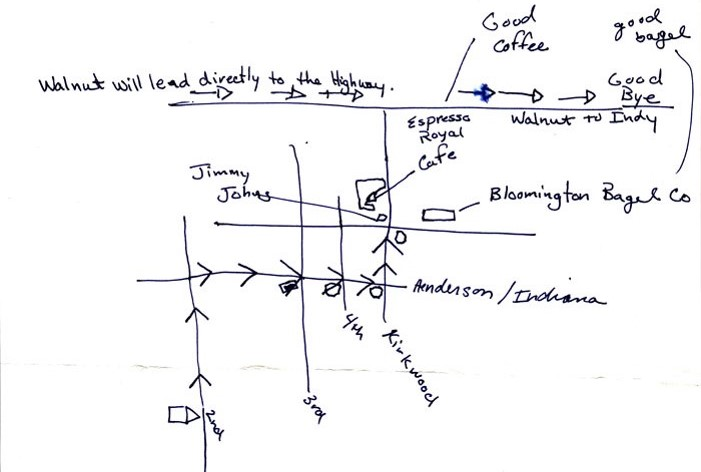 Good
Coffee
good
bagel
Walnut will lead directly to the Highway.
Good
Bye
Walnut to Indy
Espresso
Royal
Cafe
Jimmy
Johns
Bloomington Bagel Co
Henderson/Indiana
4th
Kirkwood
3rd
2nd